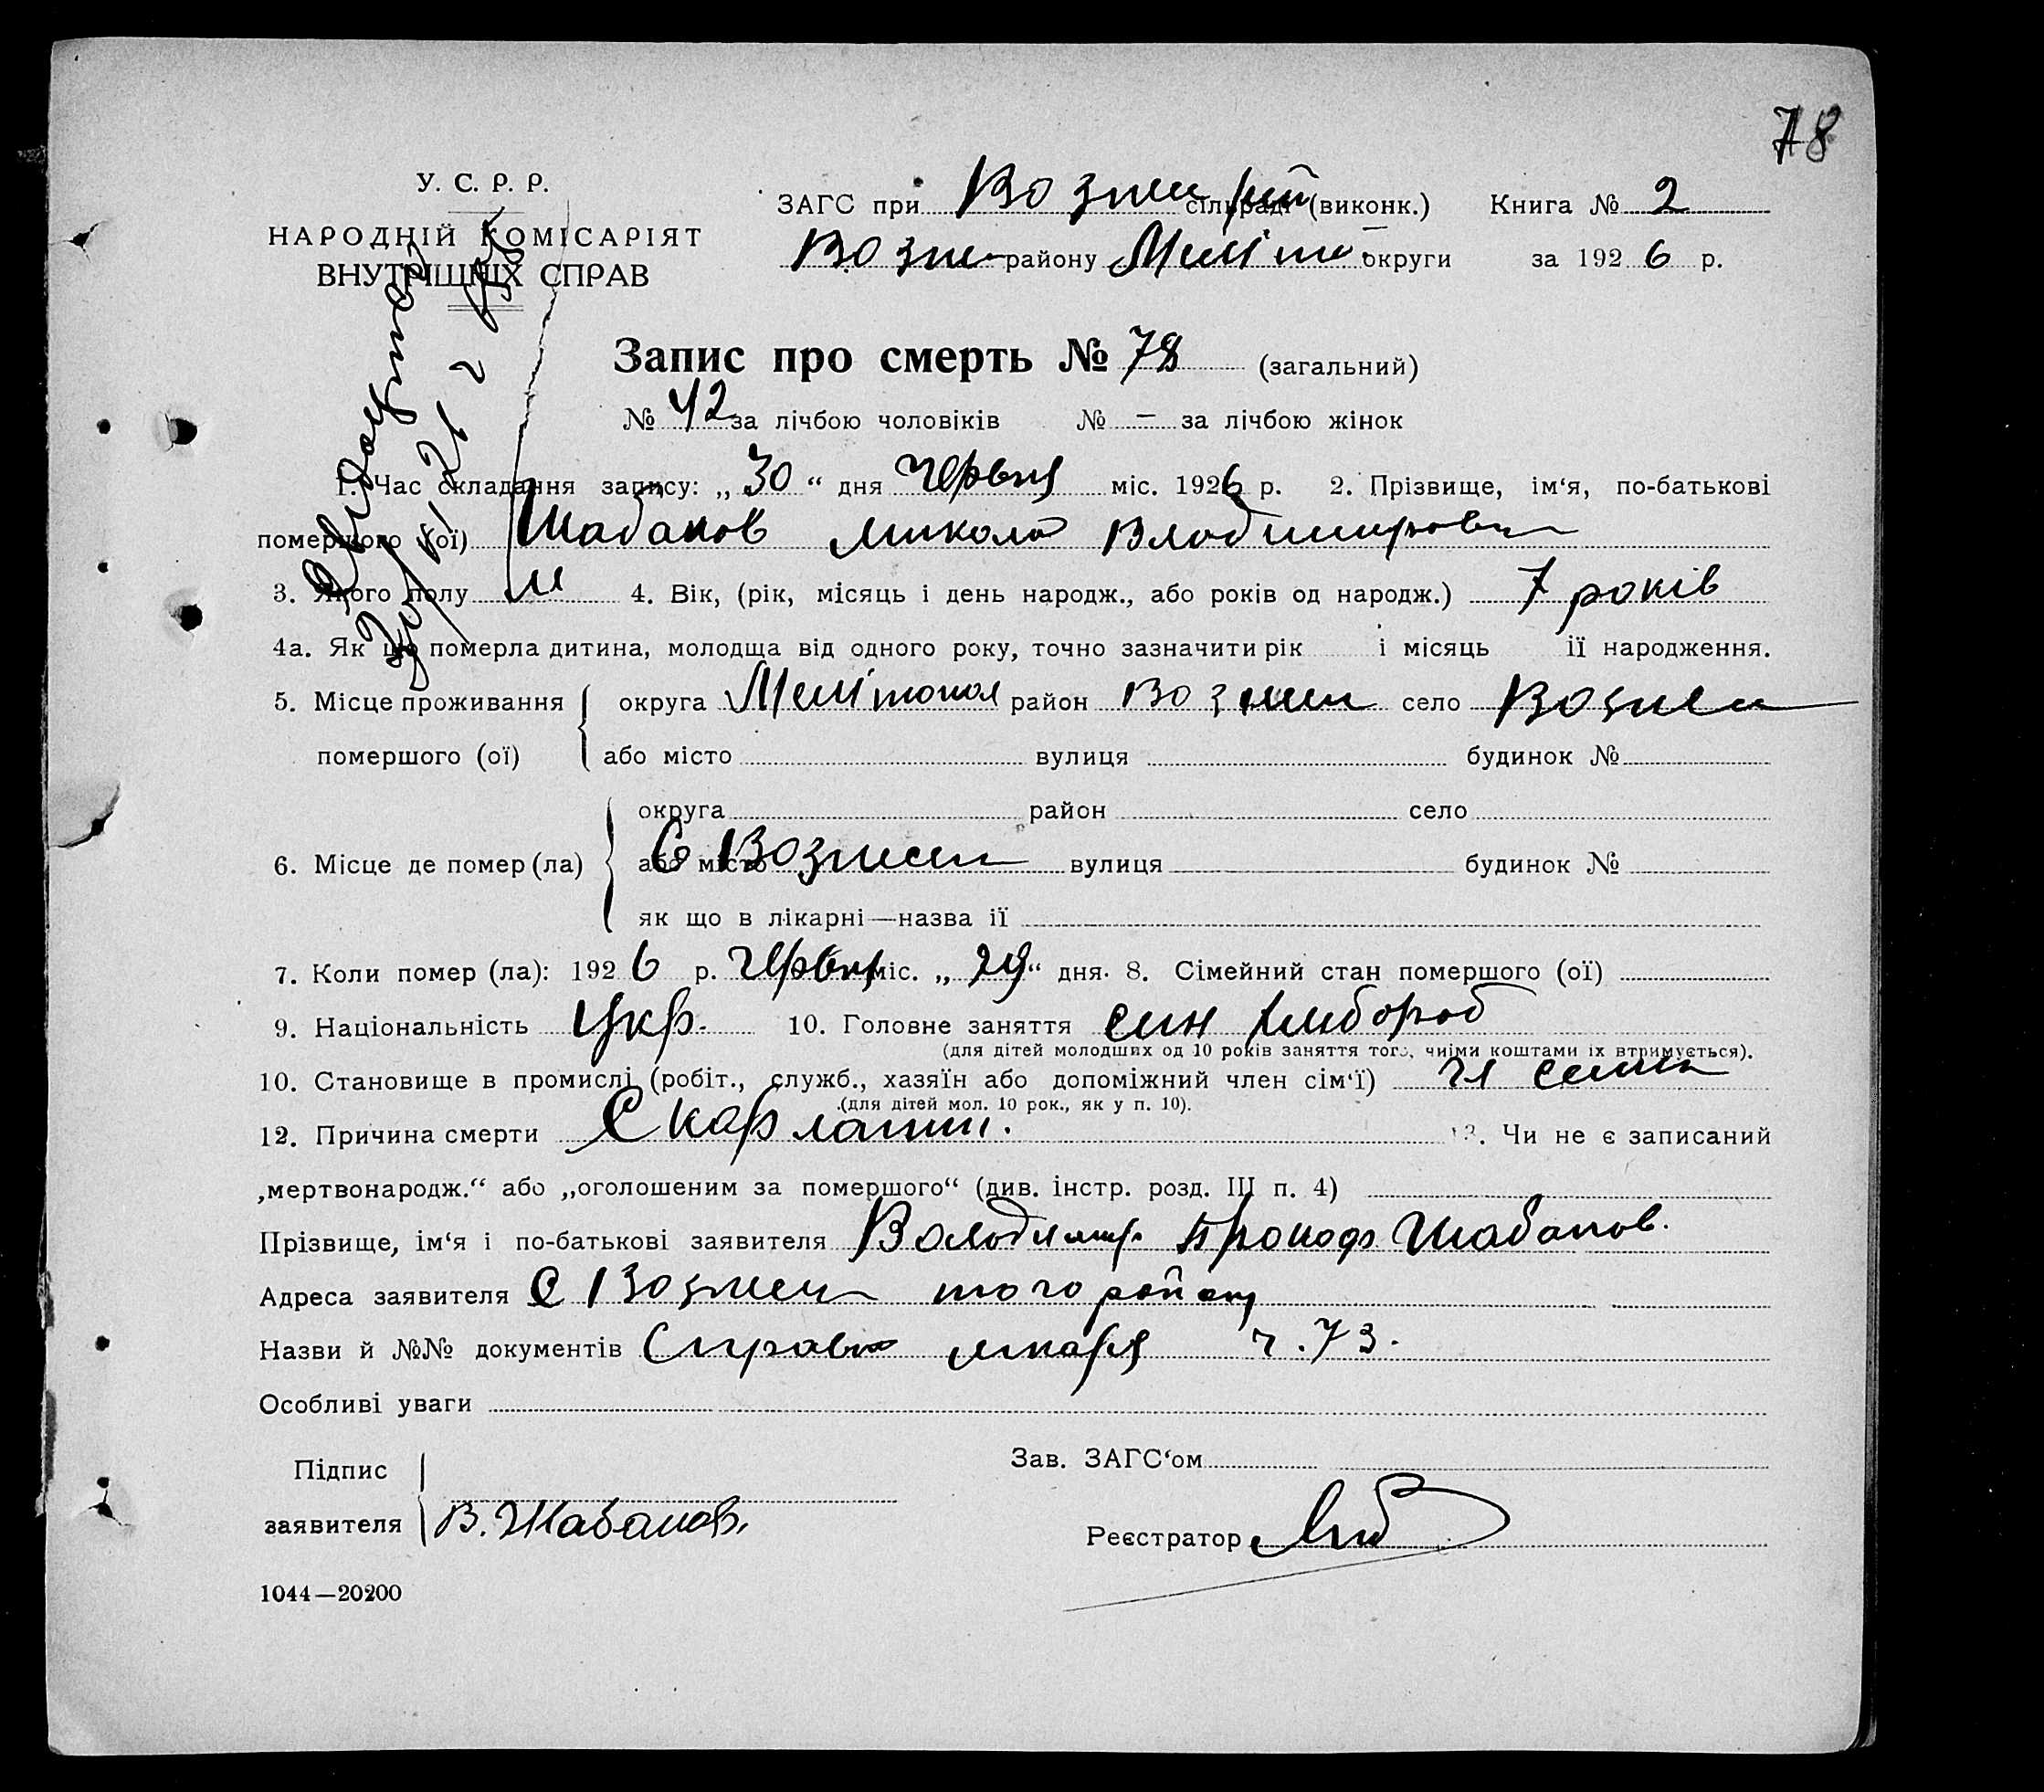 78
У. С. Р. Р.
НАРОДНІЙ КОМІСАРІЯТ
ВНУТРІШНІХ СПРАВ
ЗАГС при Возне рай сільраді (виконк.) Книга № 2
Возне району Меліто. округи за 1926 р.
Запис про смерть № 78 (загальний)
№ 42 за лічбою чоловіків № — за лічбою жінок
1. Час складання запису: „30“ дня Червня міс. 1926 р. 2. Прізвище, ім‘я, по-батькові
помершого (ої) Шабанов Микола Владимирович
3. Якого полу м 4. Вік, (рік, місяць і день народж., або років од народж.) 7 років
4а. Як що померла дитина, молодща від одного року, точно зазначити рік і місяць її народження.
5. Місце проживання округа Мелітопол район Вознесен село Вознесен
помершого (ої) або місто вулиця будинок №
округа район село
6. Місце де помер (ла) або місто С Вознесен вулиця будинок №
як що в лікарні—назва її
7. Коли помер (ла): 1926 р. Червня міс. „29“ дня. 8. Сімейний стан помершого (ої)
9. Національність Укр. 10. Головне заняття син хлібороб
(для дітей молодших од 10 років заняття того, чиїми коштами їх втримується).
10. Становище в промислі (робіт., служб., хазяїн або допоміжний член сім‘ї) чл семьи
(для дітей мол. 10 рок., як у п. 10).
12. Причина смерти Скарлатин. 13. Чи не є записаний
„мертвонародж.“ або „оголошеним за помершого“ (див. інстр. розд. III п. 4)
Прізвище, ім‘я і по-батькові заявителя Володимир Прокоф Шабанов.
Адреса заявителя С Вознесен того району
Назви й №№ документів Справка лікаря ч. 73.
Особливі уваги
Підпис
заявителя В. Шабанов.
Зав. ЗАГС‘ом
Реєстратор
1044—20200